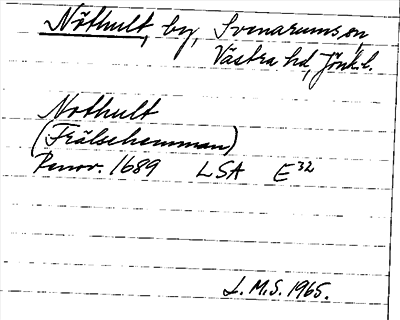 Nöthult, by, Svenarums sn,
Västra hd, Jönk. l.
Nothult
(Frälsehemman)
Renov. 1689 LSA E32
L.M.S. 1965.